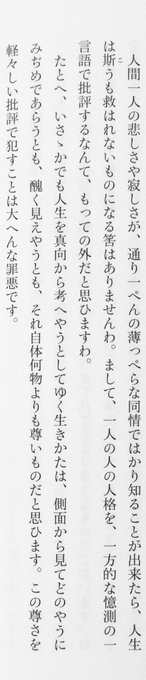 人間一人の悲しさや寂しさが、通り一ぺんの薄っぺらな同情ではかり知ることが出来たら、人生
は斯うも救はれないものになる筈はありませんわ。まして、一人の人の人格を、一方的な憶測の一
言語で批評するなんて、もっての外だと思ひますわ。
たとへ、いさゝかでも人生を真向から考へやうとしてゆく生きかたは、側面から見てどのやうに
みぢめであらうとも、醜く見えやうとも、それ自体何物よりも尊いものだと思ひます。この尊さを
軽々しい批評で犯すことは大へんな罪悪です。